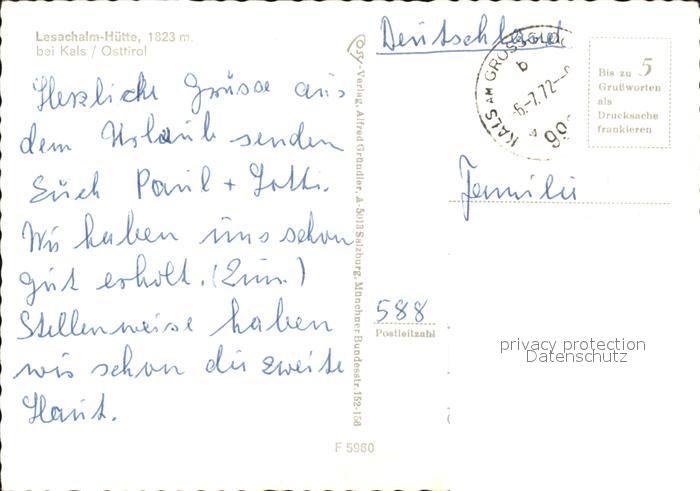 Lesachalm-Hütte, 1823 m.
bei Kals / Osttirol
Herzliche Grüsse aus
dem Urlaub senden
Euch Paul +
Wir haben uns schon
gut erholt. (2 im.)
Stellenweise haben
wir schon die zweite
Haut.
Osy-Verlag, Alfred Gründler, A-5013 Salzburg, Münchner Bundesstr. 152-156
F 5960
Deutschland
KALS AM GROSSGLOC
b
-6.-7.72-
Bis zu 5
Grußworten
als
Drucksache
frankieren
Familie
588
Postleitzahl
privacy protection
Datenschutz